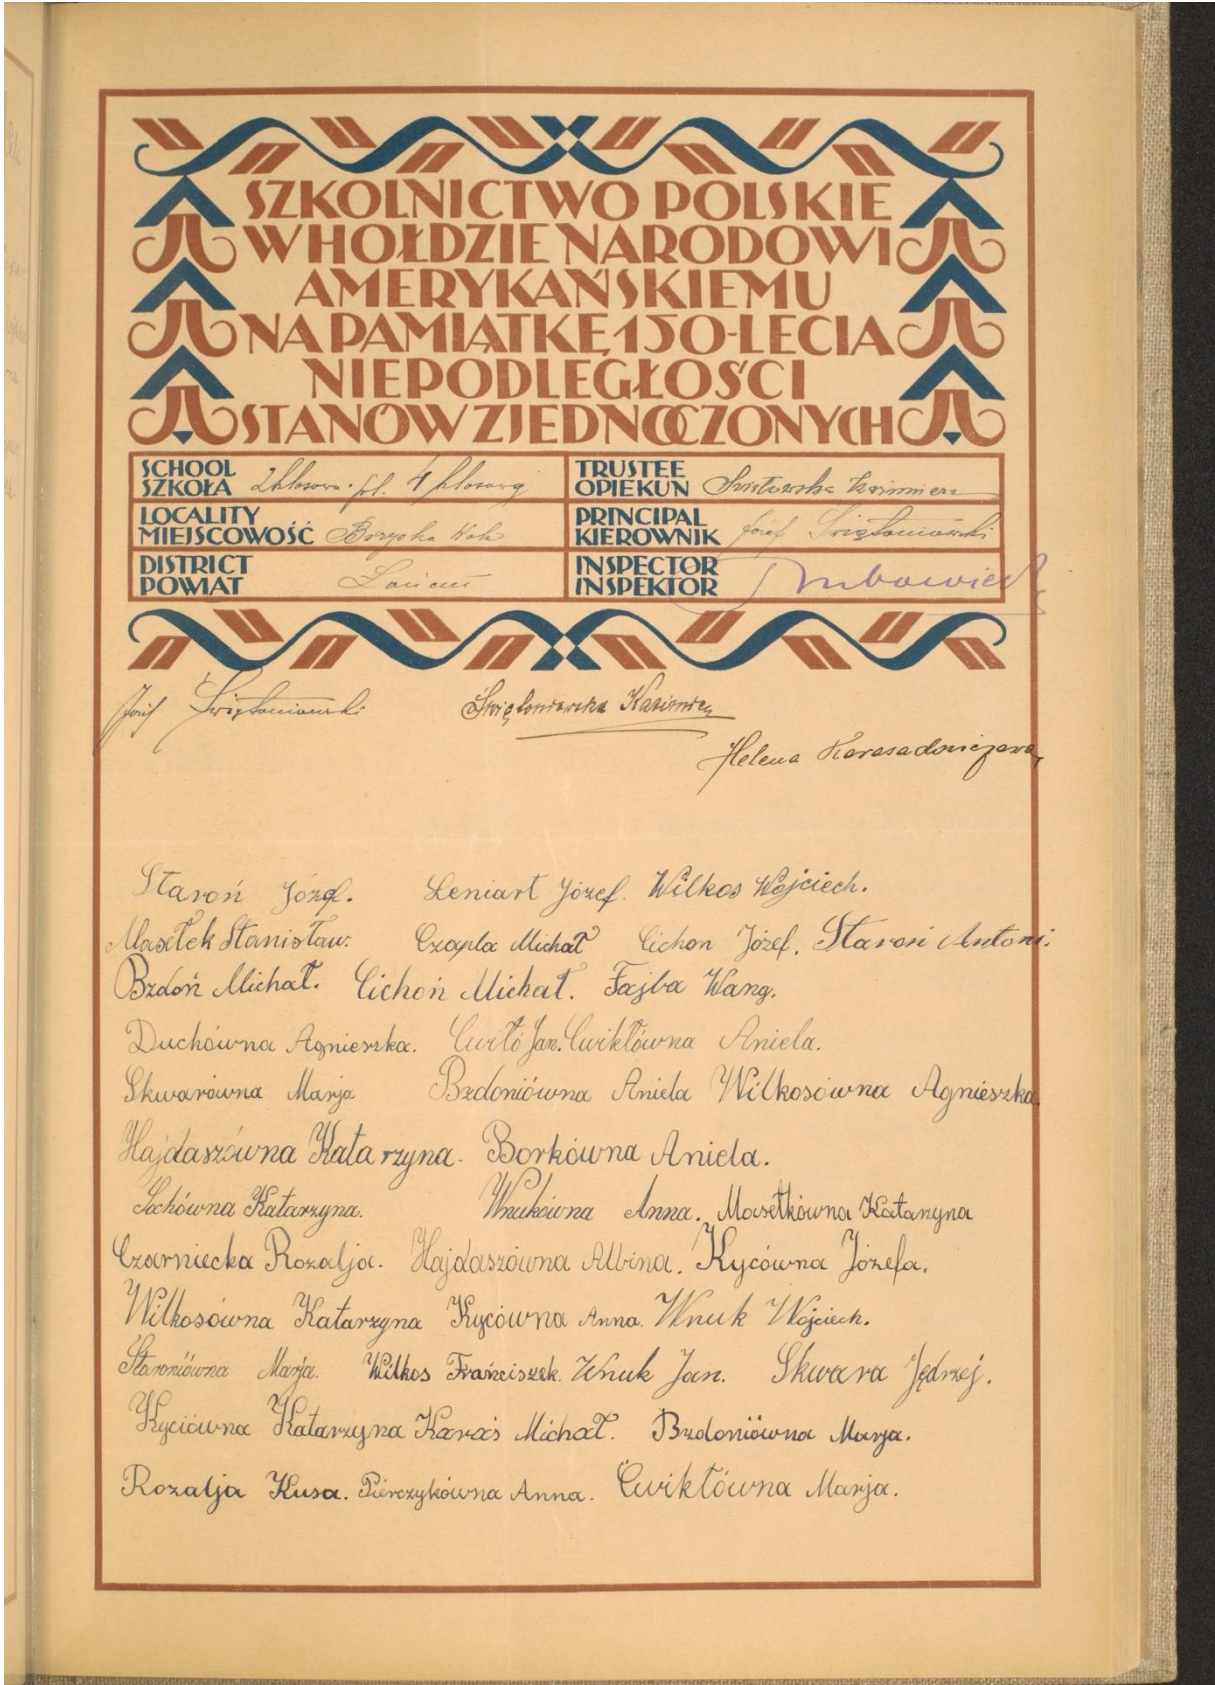 SZKOLNICTWO POLSKIE
W HOŁDZIE NARODOWI
AMERYKAŃSKIEMU
NA PAMIĄTKĘ 150-LECIA
NIEPODLEGŁOŚCI
STANÓW ZJEDNOCZONYCH
SCHOOL
SZKOŁA 4 klasową
TRUSTEE
OPIEKUN
LOCALITY
MIEJSCOWOŚĆ Brzyska Wola
PRINCIPAL
KIEROWNIK Józef Świętoniowski
DISTRICT
POWIAT Łańcut
INSPECTOR
INSPEKTOR
Józef Świętoniowski Świętoniowska Kazimiera
Helena
Staroń Józef. Leniart Józef. Wilkos Wojciech.
Masełek Stanisław. Czapla Michał Cichon Józef. Staroń Antoni.
Bzdoń Michał. Cichoń Michał. Fajba Wang.
Duchówna Agnieszka. Jan. Cwikłówna Aniela.
Skwarówna Marja Bzdoniówna Aniela Wilkosówna Agnieszka
Hajdaszówna Katarzyna. Borkówna Aniela.
Sochówna Katarzyna. Wnukówna Anna. Masełkówna Katarzyna
Czarniecka Rozalja. Hajdaszówna Albina. Kycówna Józefa.
Wilkosówna Katarzyna Kycówna Anna. Wnuk Wojciech.
Staroniówna Marja. Wilkos Frańciszek. Wnuk Jan. Skwara Jędrzej.
Kyciówna Katarzyna Karaś Michał. Bzdoniówna Marja.
Rozalja Kusa. Pierczykówna Anna. Ćwikłówna Marja.